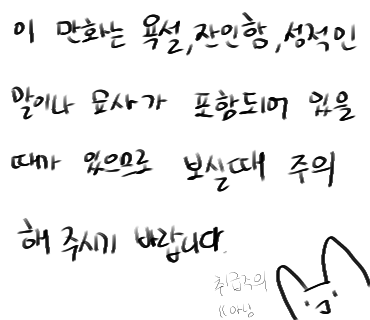 이 만화는 욕설,잔인함,성적인
말이나 묘사가 포함되어 있을
때가 있으므로 보실때 주의
해 주시기 바랍니다.
취급주의
아님